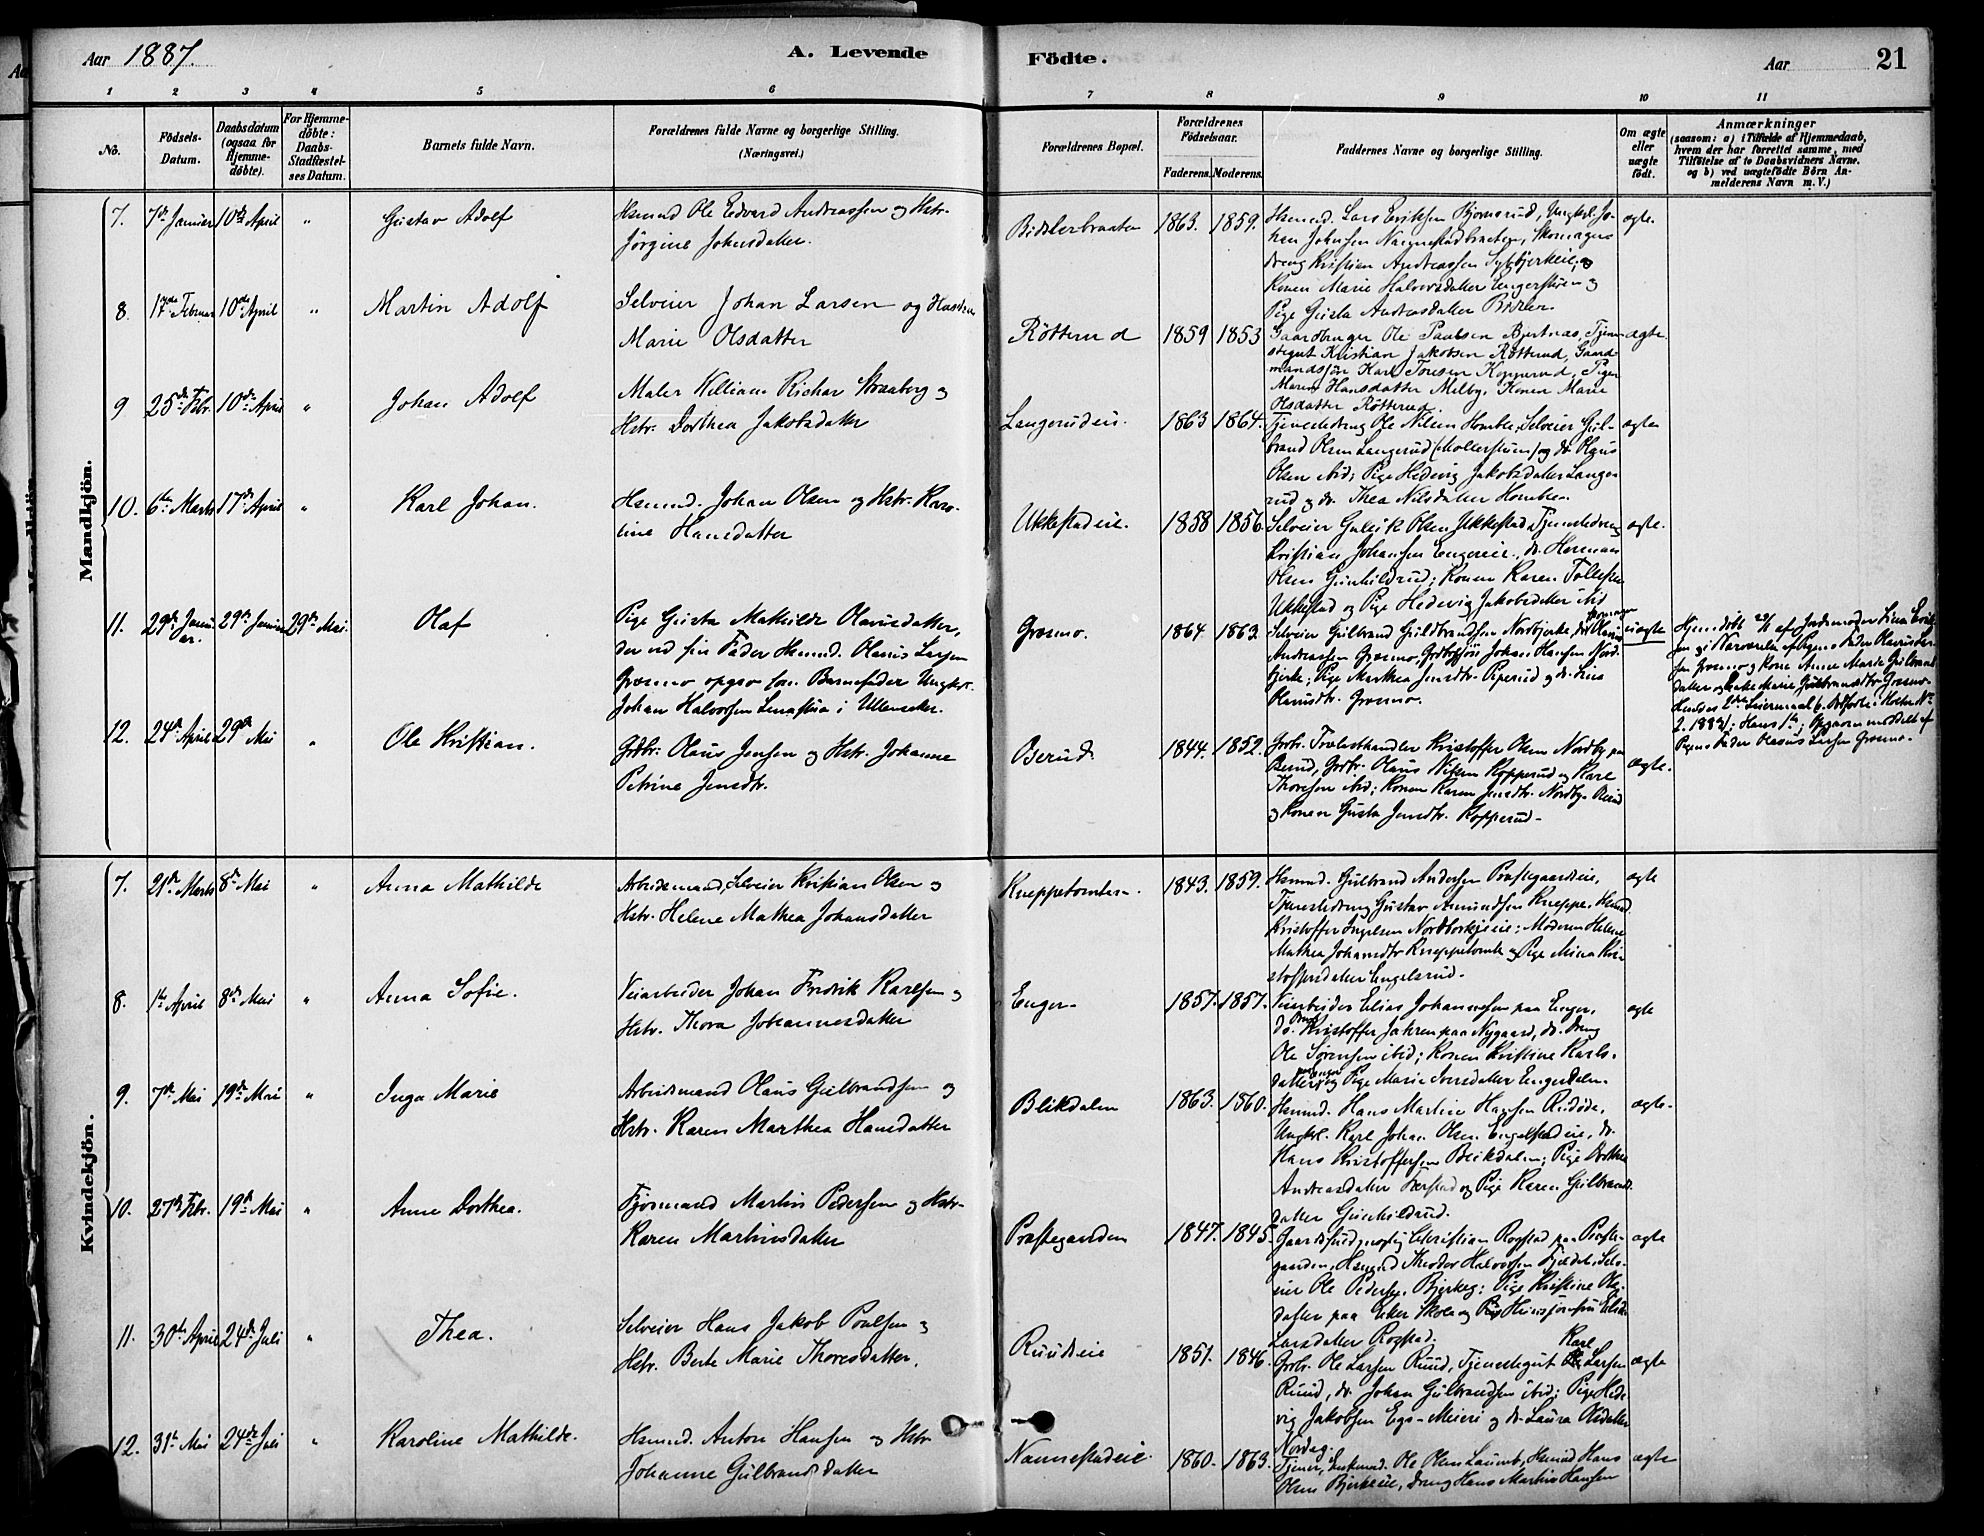 Aar 1887.
A. Levende
Födte.
Aar
21
1 2 3 4 5 6 7 8 9 10 11
No.
Födsels-Datum.
Daabsdatum (ogsaa for Hjemme-döbte).
For Hjemme-döbte: Daabs-Stadfæstel-ses Datum.
Barnets fulde Navn.
Forældrenes fulde Navne og borgerlige Stilling.
(Næringsvei.)
Forældrenes Bopæl.
Forældrenes Födselsaar.
Faderens. Moderens.
Faddernes Navne og borgerlige Stilling.
Om ægte eller uægte födt.
Anmærkninger
(saasom: a) i Tilfælde af Hjemmedaab,
hvem der har forrettet samme, med
Tilföielse af to Daabsvidners Navne.
og b) ved uægtefödte Börn An-
melderens Navn m. V.)
Mandkjön.
7. 7de Januar 10de April " Gustav Adolf
Hsmnd Ole Edvard Andreassen og Hstr.
Jörgine Johnsdatter.
Bidslerbraaten 1863. 1859.
Hsmnd. Lars Eriksen Bjornerud, Ungkl. Jo-
han Johnsen Nannestadbraaten, Skomager
dreng Kristian Andreassen
Konen Marie Halvorsdatter Engerstuen og
Pige Gusta Andreasdatter Bidsler
ægte.
8. 17de Februar 10de April " Martin Adolf
Selveier Johan Larsen og Hustru
Marie Olsdatter
Rötterud 1859 1853
Gaardbruger Ole Paulsen Bjertnæs, Tjene-
stegut Kristian Jakobsen Rötterud, Gaard-
mandssön Karl Toresen Kopperud, Pigen
Maren Hansdatter Melby, Konen Marie
Olsdatter Rötterud.
ægte
9 25de Febr. 10de April " Johan Adolf
Maler William Richar Straaberg og
Hstr. Dorthea Jakobsdatter
Langerudeie. 1863 1864.
Tjenestedreng Ole Nilsen Homble, Selveier Gul-
brand Olsen Langerud (Mollerstuen) og do Olaus
Olsen ibid; Pige Hedevig Jakobsdatter Lange-
rud og do. Thea Nilsdatter Homble.
ægte
10. 6te Marts 17de April " Karl Johan.
Hsmnd. Johan Olsen og Hstr. Karo-
line Hansdatter
Ukkestadeie. 1858 1856.
Selveier Gulbrik Olsen Ukkestad, Tjenestedreng
Kristian Johansen Engereie, do. Herman
Olsen Gunhildrud; Konen Karen Tollefsen
Ukkestad og Pige Hedevig Jakobsdatter ibid
ægte.
11. 29de Janu-ar. 29de Januar 29de Mai. Olaf
Pige Gusta Mathilde Olavisdatter,
der ved sin Fader Hsmnd. Olavis Larsen
Græsmo opgav som Barnefader Ungkl.
Johan Halvorsen Lenastua i Ullensaker.
Græsmo. 1864. 1863.
Selveier Gulbrand Guldbrandsen Nordbjerke,
Andreassen Græsmo, Grdbrssön Johan Hansen Nord-
bjerke; Pige Marthea Jensdtr. Piperud og do. Lina
Olavisdtr. Græsmo.
uægte
Hjemdöbt af Jordemoder Lina Erik-
sen i Nærværelse af Pigens Fader Olavis Lar-
sen Græsmo og Kone Anne Marte Gulbrands-
datter og Enke Marie Gulbrandsdtr. Græsmo.
12. 24de April 29de Mai " Ole Kristian.
Grdbr. Olaus Jensen og Hstr. Johanne
Petrine Jensdtr.
Berud. 1844. 1852.
Grdbr. Trælasthandler Kristoffer Olsen Nordby paa
Berud, Grdbr. Olaus Nilsen Kopperud og Karl
Thoresen ibid; Konen Karen Jensdtr. Nordby Berud
og Konen Gusta Jensdtr. Kopperud.
ægte.
Kvindekjön.
7. 21de Marts 8de Mai " Anna Mathilde
Arbeidsmand, Selveier Kristian Olsen og
Hstr. Helene Mathea Johansdatter
Kneppetomten. 1843. 1859.
Hsmnd. Gulbrand Andersen Præstegaardseie,
Tjenestedreng Gustav Amundsen Kneppe, Hsmd.
Kristoffer Engelsen Nordbærkjeeie; Moderen Helene
Mathea Johansdtr Kneppetomt og Pige Mina Kri-
stoffersdatter Engelsrud.
ægte
8. 1te April 8de Mai " Anna Sofie.
Veiarbeider Johan Fredrik Karlsen og
Hstr. Thora Johannesdatter
Enger. 1857. 1857.
Veiarbeider Elias Johannessen paa Enger,
do. Kristoffer Jahren paa Nygaard, do. dreng
Ole Sörensen ibid; Konen Kristine Karls-
datter og Pige Marie Iversdatter Engerdalen.
ægte
9. 7de Mai 19de Mai " Inga Marie
Arbeidsmand Olaus Gulbrandsen og
Hstr. Karen Marthea Hansdatter
Blikdalen 1863. 1860.
Hsmnd. Hans Martin Hansen Rudöde,
Ungkl. Karl Johan Olsen Engelstadeie, do.
Hans Kristoffersen Blikdalen; Pige Dorthea
Andreasdatter og Pige Karen Gulbrands-
datter Gunhildrud.
ægte.
10. 27de Febr. 19de Mai " Anne Dorthea.
Fjösmand Martin Pedersen og Hstr.
Karen Martinsdatter
Præstegaarden 1847. 1845.
Gaardsfuldmægtig Christian Rogstad paa Præste-
gaarden, Hsmnd Theodor Halvorsen Fjeldet, Selv-
eier Ole Pedersen Bjerkeg; Pige Kristine Ols-
datter paa Eker Skole og
Larsdatter Rogstad.
ægte
11. 30te April 24de Juli " Thea.
Selveier Hans Jakob Poulsen og
Hstr. Berte Marie Thoresdatter.
Ruudseie 1851. 1846.
Grdbr. Ole Larsen Ruud, Tjenestegut Karl Larsen
Ruud, do. Johan Gulbrandsen ibid; Pige Hede-
vig Jakobsen Egs-Meieri og do. Laura Olsdatter
Nordag.
ægte
12. 31te Mai 24de Juli " Karoline Mathilde.
Hsmnd. Anton Hansen og Hstr.
Johanne Gulbrandsdatter
Nannestadeie. 1860. 1863.
Ole Olsen Laumb, Hsmnd Hans
Olsen Bjerkeeie, Dreng Hans Martin Hansen
ægte